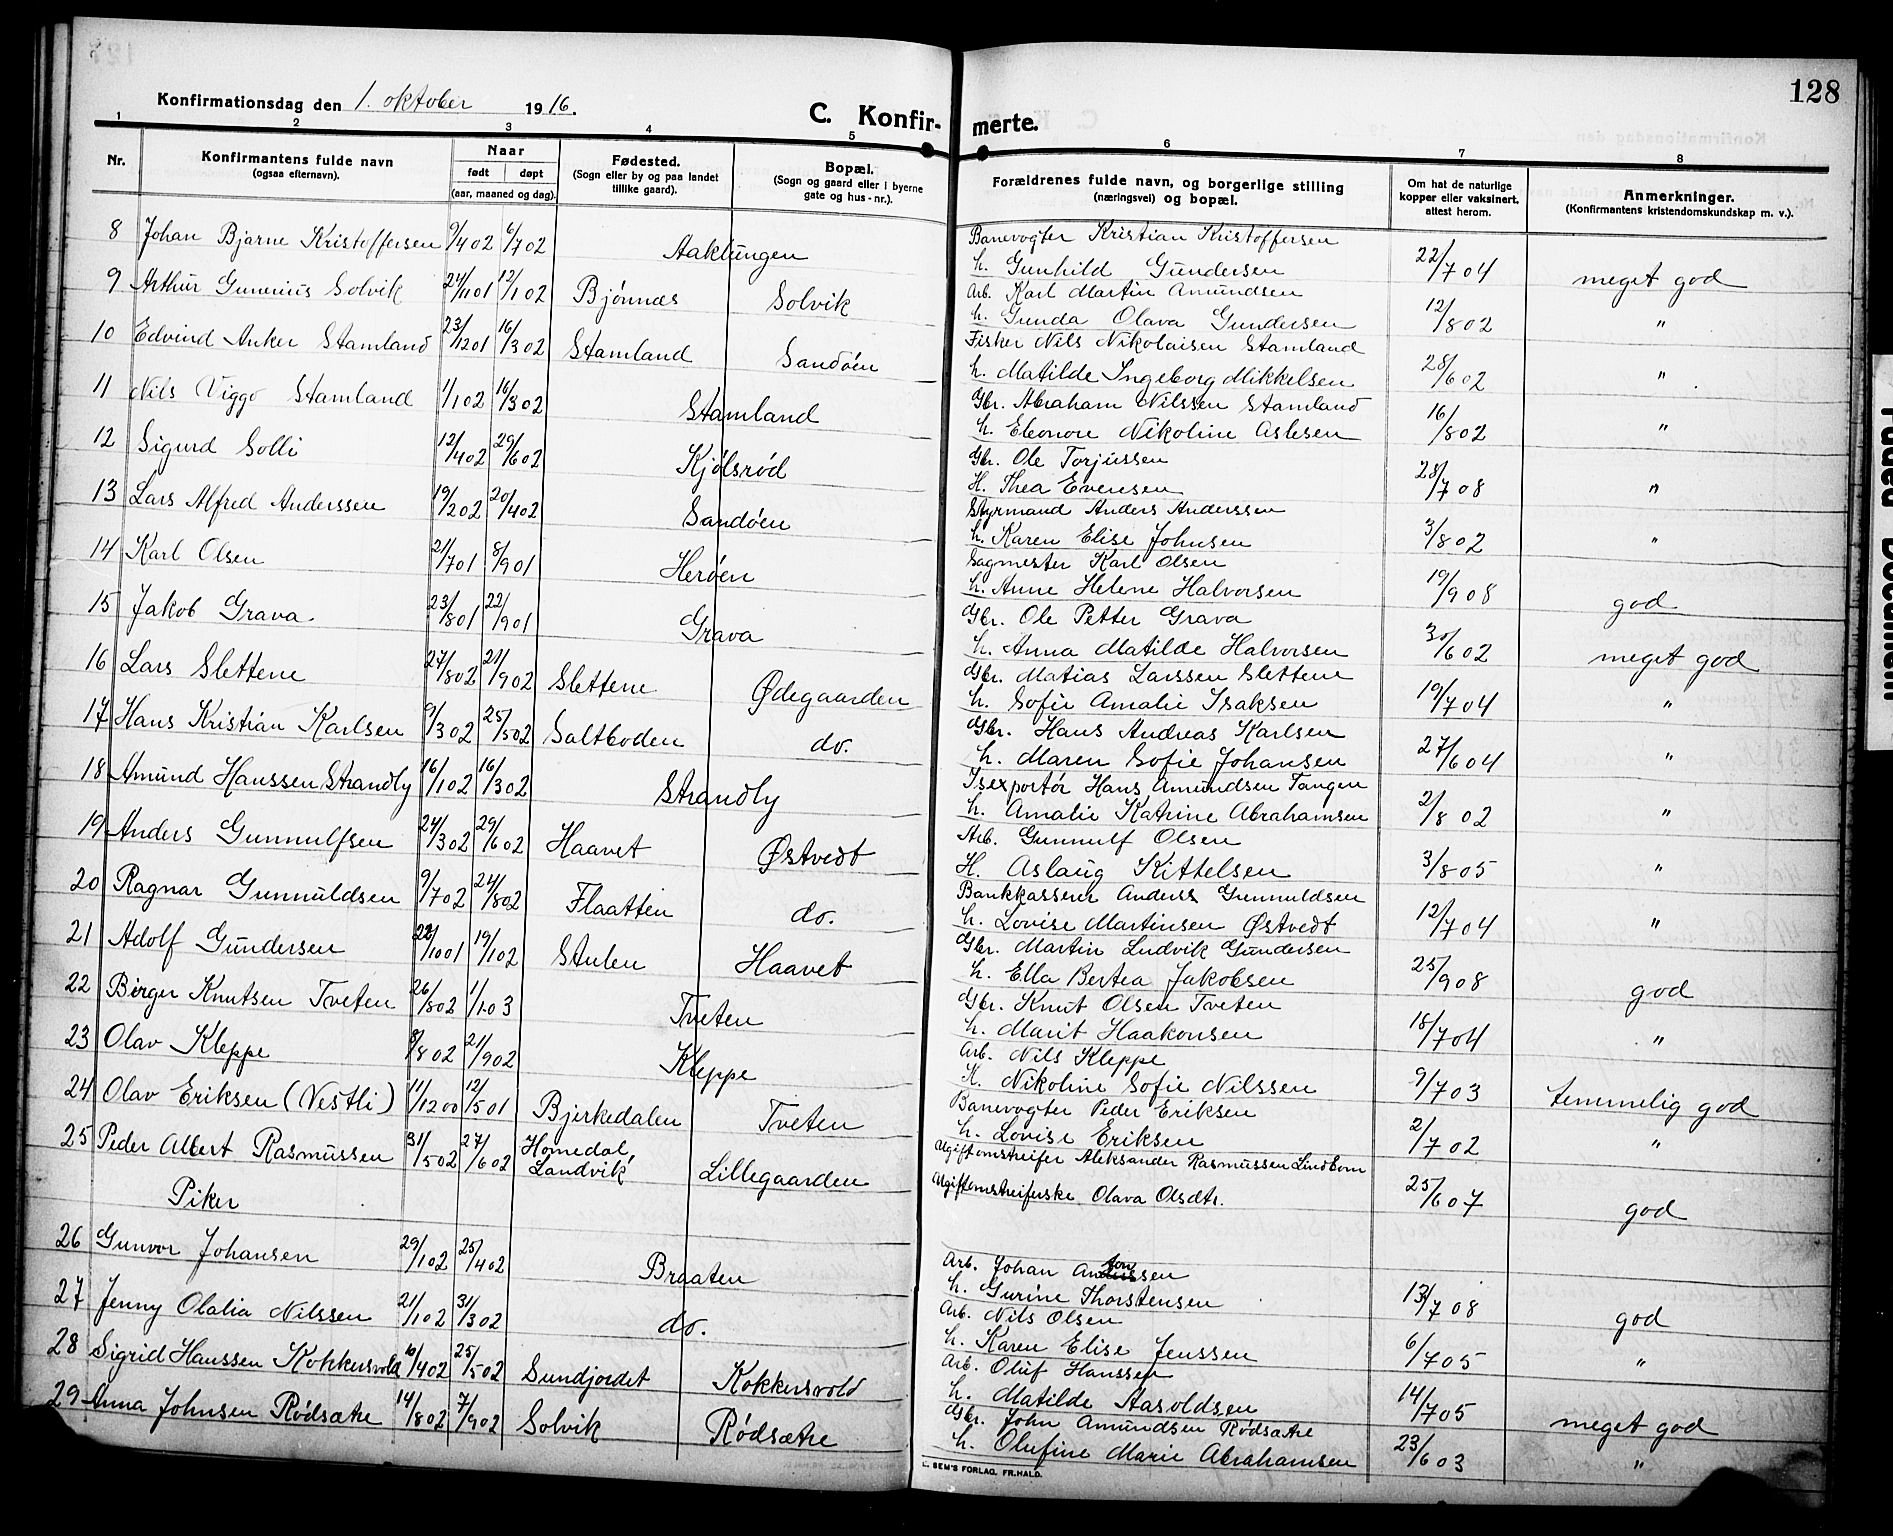 128
Konfirmationsdag den 1. oktober 1916.
C. Konfir- merte.
1 2 3 4 5 6 7 8
Nr. Konfirmantens fulde navn (ogsaa efternavn). Naar født døpt (aar, maaned og dag). Fødested. (Sogn eller by og paa landet tillike gaard). Bopæl. (Sogn og gaard eller i byerne gate og hus-nr.). Forældrenes fulde navn, og borgerlige stilling (næringsvei) og bopæl. Om hat de naturlige kopper eller vaksinert, attest herom. Anmerkninger. (Konfirmantens kristendomskundskap m. v.).
8 Johan Bjarne Kristoffersen 9/4 02 6/7 02 Aaklungen Banevogter Kristian Kristoffersen
h. Gunhild Gundersen 22/7 04 meget god
9 Arthur Gunerius Solvik 24/11 01 12/1 02 Bjønnes Solvik Arb. Karl Martin Amundsen
h. Gunda Olava Gundersen 12/8 02 "
10 Edvind Anker Stamland 23/12 01 16/3 02 Stamland Sandøen Fisker Nils Nikolaisen Stamland
h. Matilde Ingeborg Mikkelsen 28/6 02 "
11 Nils Viggo Stamland 1/1 02 16/3 02 Stamland Gbr. Abraham Nilssen Stamland
h. Eleonore Nikoline Aslesen 16/8 02 "
12 Sigurd Solli 12/4 02 29/6 02 Kjølsrød Gbr. Ole Torjussen
H. Thea Evensen 28/7 08 "
13 Lars Alfred Anderssen 19/2 02 20/4 02 Sandøen Styrmand Anders Anderssen
h. Karen Elise Johnsen 3/8 02 "
14 Karl Olsen 21/7 01 8/9 01 Herøen Sagmester Karl Olsen
h. Anne Helene Halvorsen 19/9 08 god
15 Jakob Grava 23/8 01 22/9 01 Grava Gbr. Ole Petter Grava
h. Anna Matilde Halvorsen 30/6 02 meget god
16 Lars Slettene 27/8 02 21/9 02 Slettene Ødegaarden Gbr. Matias Larssen Slettene
h. Sofie Amalie Isaksen 19/7 04 "
17 Hans Kristian Karlsen 9/3 02 25/5 02 Saltboden do. Gbr. Hans Andreas Karlsen
h. Maren Sofie Johansen 27/6 04 "
18 Amund Hanssen Strandly 16/1 02 16/3 02 Strandly Isexportør Hans Amundsen Tangen
h. Amalie Katrine Abrahamsen 2/8 02 "
19 Anders Gunnulfsen 24/3 02 29/6 02 Haavet Østvedt Arb. Gunnulf Olsen
H. Aslaug Kittelsen 3/8 05 "
20 Ragnar Gunnuldsen 9/7 02 24/8 02 Flaatten do. Bankkasserer Anders Gunnuldsen
h. Lovise Martinsen Østvedt 12/7 04 "
21 Adolf Gundersen 22/10 01 19/1 02 Stulen Haavet Gbr. Martin Ludvik Gundersen
h. Ella Bertea Jakobsen 25/9 08 god
22 Birger Knutsen Tveten 26/8 02 1/1 03 Tveten Gbr. Knut Olsen Tveten
h. Marit Haakonsen 18/7 04 "
23 Olav Kleppe 8/8 02 21/9 02 Kleppe Arb. Nils Kleppe
H. Nikoline Sofie Nilssen 9/7 03 temmelig god
24 Olav Eriksen (Vestli) 11/12 00 12/5 01 Bjerkedalen Tveten Banevogter Peder Eriksen
h. Lovise Eriksen 2/7 02 "
25 Peder Albert Rasmussen 31/5 02 27/6 02 Homedal, Landvik Lillegaarden Ugift omstreifer Aleksander Rasmussen Lindbom
Ugift omstreiferske Olava Olsdtr. 25/6 07 god
Piker
26 Gunvor Johansen 29/1 02 25/4 02 Braaten Arb. Johan Antonssen
h. Gurine Thorstensen 13/7 08 god
27 Jenny Olalia Nilssen 21/1 02 31/3 02 do. Arb. Nils Olsen
h. Karen Elise Jenssen 6/7 05 "
28 Sigrid Hanssen Kokkersvold 10/4 02 25/5 02 Sundjordet Kokkersvold Arb. Oluf Hanssen
h. Matilde Aasoldsen 14/7 05 meget god
29 Anna Johnsen Rødsætre 14/8 02 7/9 02 Solvik Rødsætre Gbr. John Amundsen Rødsætre
h. Olufine Marie Abrahamsen 23/6 03 "
SEM'S FORLAG, FR.HALD.